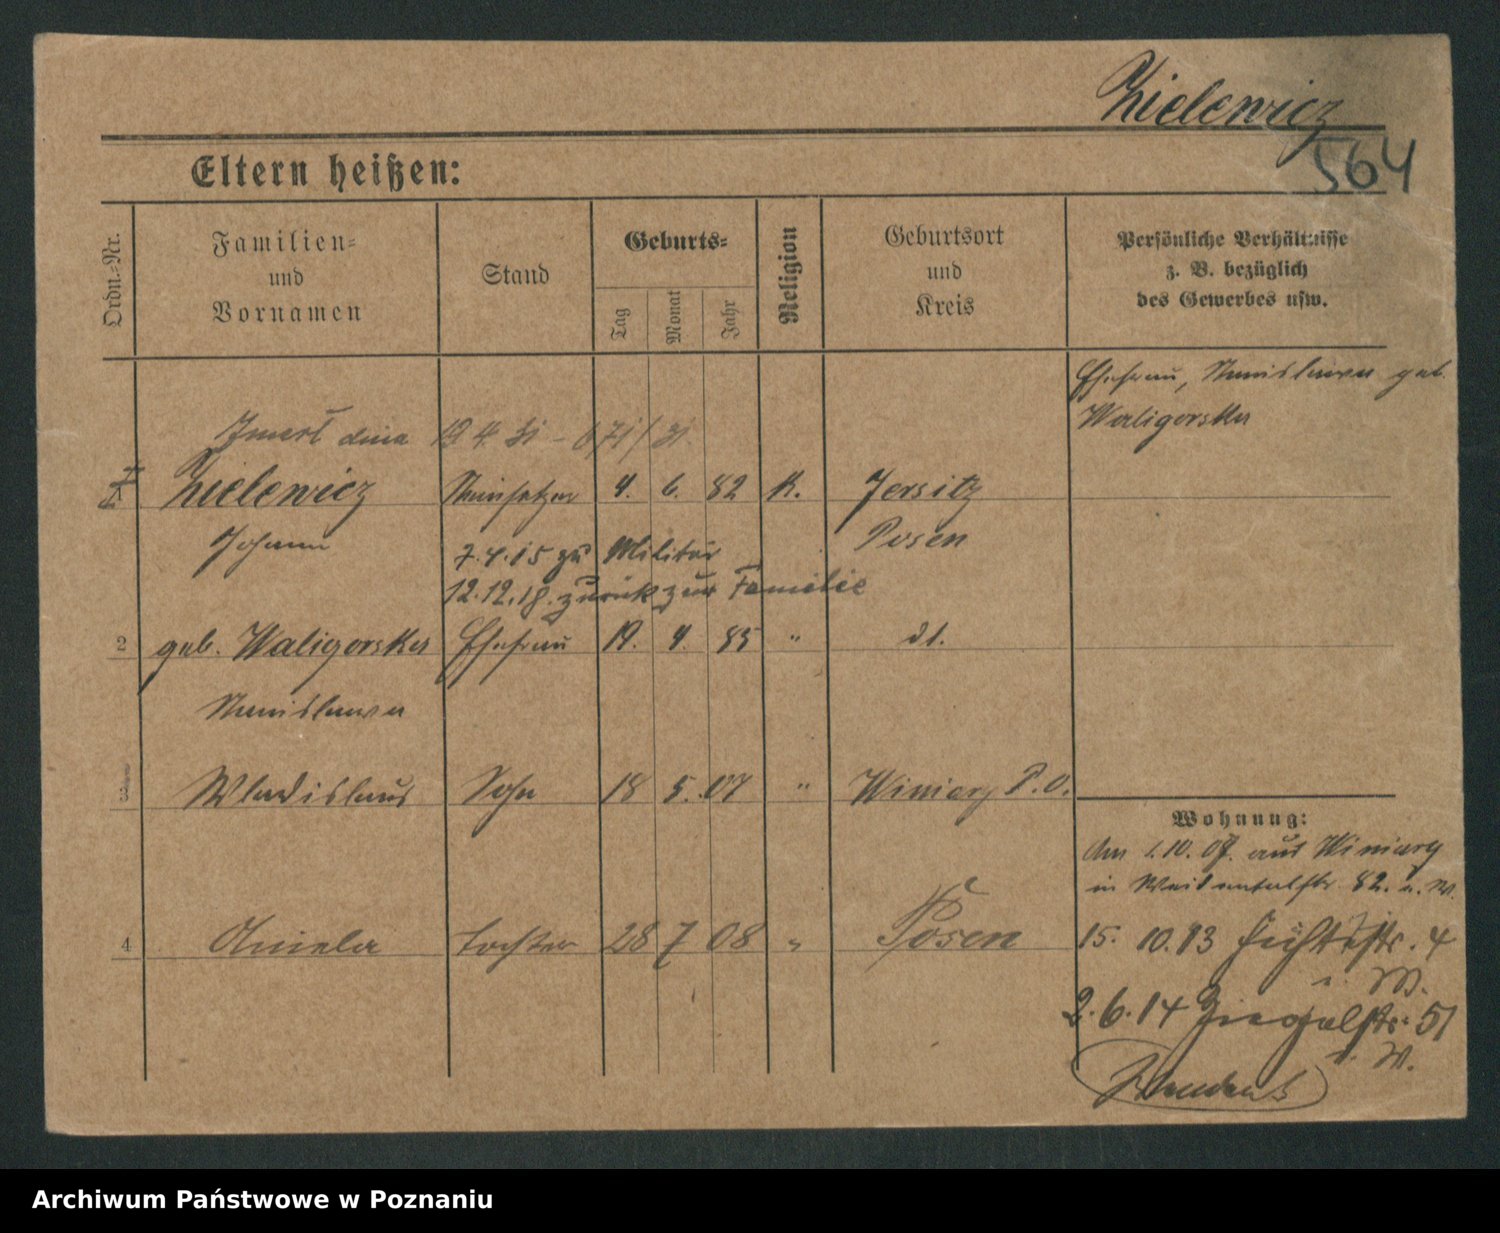 Zielewicz
564
Eltern heißen:
Ordn.-Nr.
Familien-
und
Vornamen
Stand
Geburts-
Tag
Monat
Jahr
Religion
Geburtsort
und
Kreis
Persönliche Verhältnisse
z. B. bezüglich
des Gewerbes usw.
Ehefrau, Stanislawa geb.
Waligorska
Zmarł dnia 19 4. 31 - 671/31
Zielewicz Steinsetzer 4. 6. 82 K. Jersitz
Johann Posen
7.4.15 zu Militär
12.12.18. zurück zur Familie
2 geb. Waligorska Ehefrau 19. 4. 85 " dt.
Stanislawa
3 Wladislaus Sohn 18 5. 07 " Winiary P.O.
Wohnung:
Am 1.10.07. aus Winiary
in 82. u. W.
4 Aniela Tochter 28 7 08 " Posen
15. 10.13 4
u. W.
2.6.14 Ziegelstr. 51
u. W.